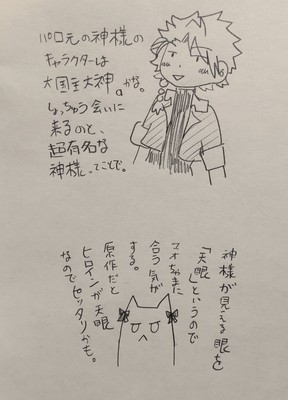 パロ元の神様の
キャラクターは
大国主大神。かな。
しょっちゅう会いに
来るのと、
超有名な
神様。ってことで。
神様が見える眼を
「天眼」というので
マオちゃまに
合う気が
する。
原作だと
ヒロインが天眼
なのでピッタリかも。